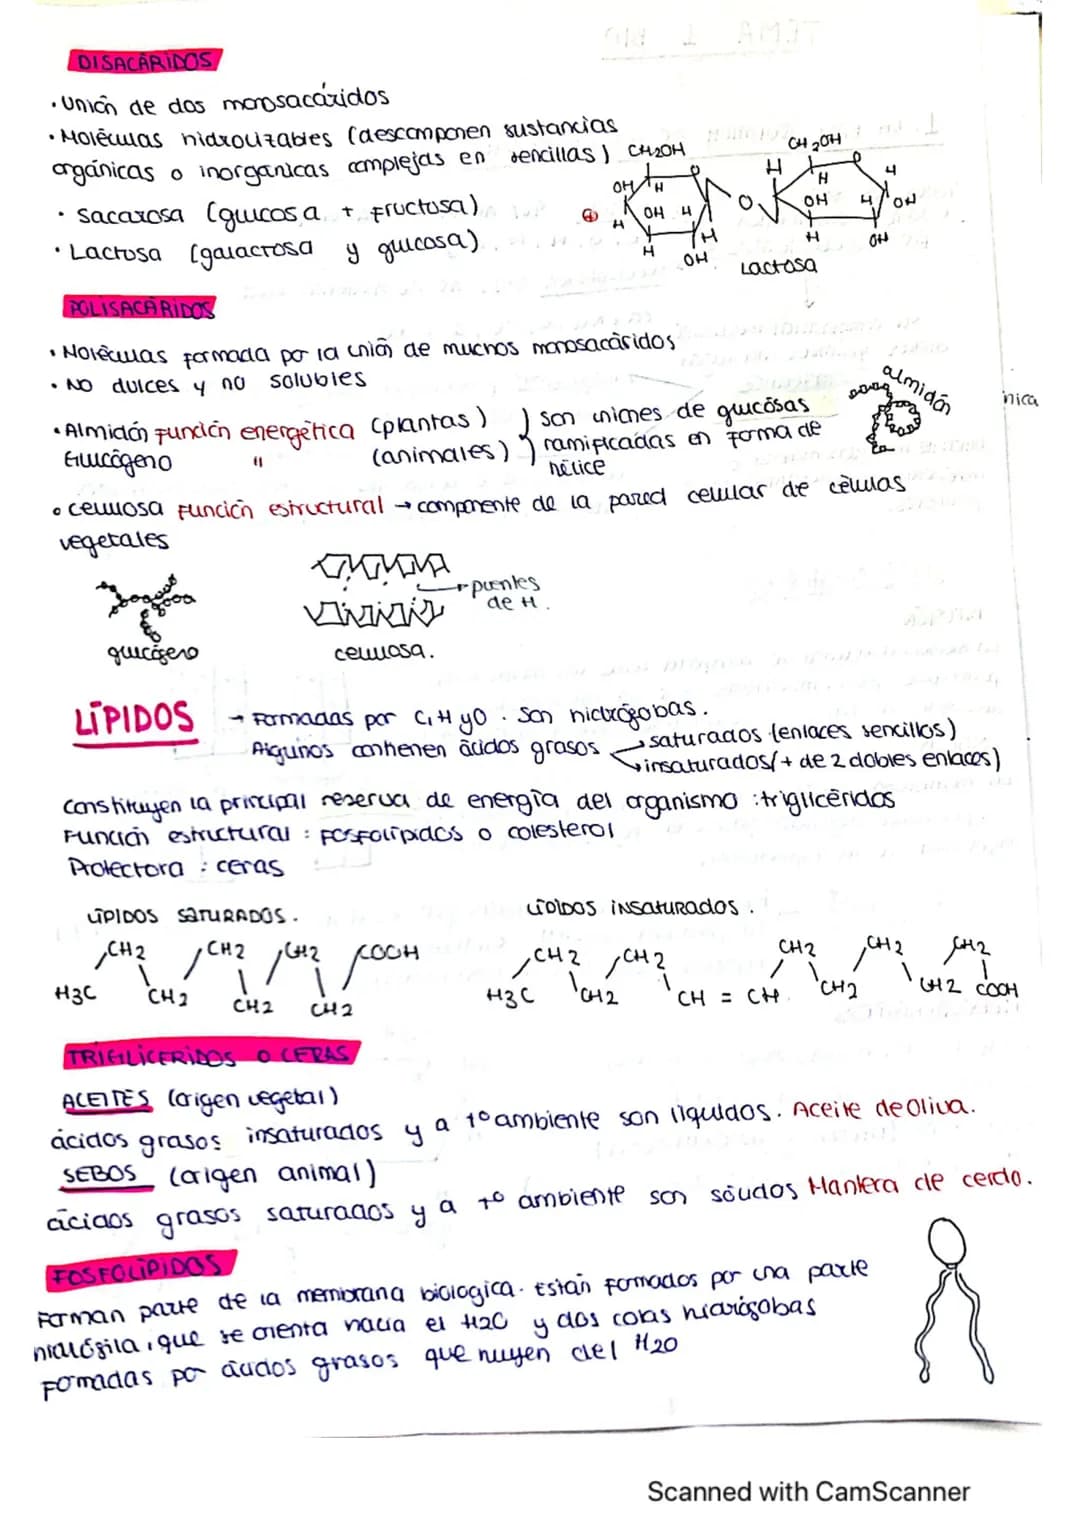 DISACÁRIDOS
· Unión de dos monosacáridos
· Moléculas hidrolizables (descomponen sustancias
orgánicas o inorgánicas complejas en sencillas)
· Sacarosa (glucosa + Fructosa)
· Lactosa (galactosa y glucosa)
CH2OH
CH2OH
O
O
H
H
H
H
OH
OH
H
OH
H
OH
O
H
H
H
H
H
OH
OH
Lactosa
POLISACÁRIDOS
· Moléculas formada por la unión de muchos monosacáridos
· NO dulces y no solubles
· Almidón Función energética (plantas) } son uniones de glucosas
Glucógeno " (animales) } ramificadas en forma de
hélice
almidón
nica
· celulosa Función estructural → componente de la pared celular de células
vegetales
puentes
de H.
glucógeno
celulosa.
LÍPIDOS → Formadas por C, H y O. Son hidrófobas.
Algunos contienen ácidos grasos → saturados (enlaces sencillos)
→ insaturados (+ de 2 dobles enlaces)
Constituyen la principal reserva de energía del organismo : triglicéridos
Función estructural : Fosfolípidos o colesterol
Protectora : ceras
LÍPIDOS SATURADOS.
LÍPIDOS INSATURADOS.
CH2 CH2 CH2 COOH
H3C CH2 CH2 CH2
CH2 CH2 CH2 CH2 CH2
H3C CH2 CH = CH CH2 CH2 COOH
TRIGLICERIDOS O CERAS
ACEITES (origen vegetal)
ácidos grasos insaturados y a tº ambiente son líquidos. Aceite de Oliva.
SEBOS (origen animal)
ácidos grasos saturados y a tº ambiente son sólidos Manteca de cerdo.
FOSFOLÍPIDOS
Forman parte de la membrana biológica. Están formados por una parte
hidrófila, que se orienta hacia el H2O y dos colas hidrógobas
Formadas por ácidos grasos que huyen del H2O
Scanned with CamScanner